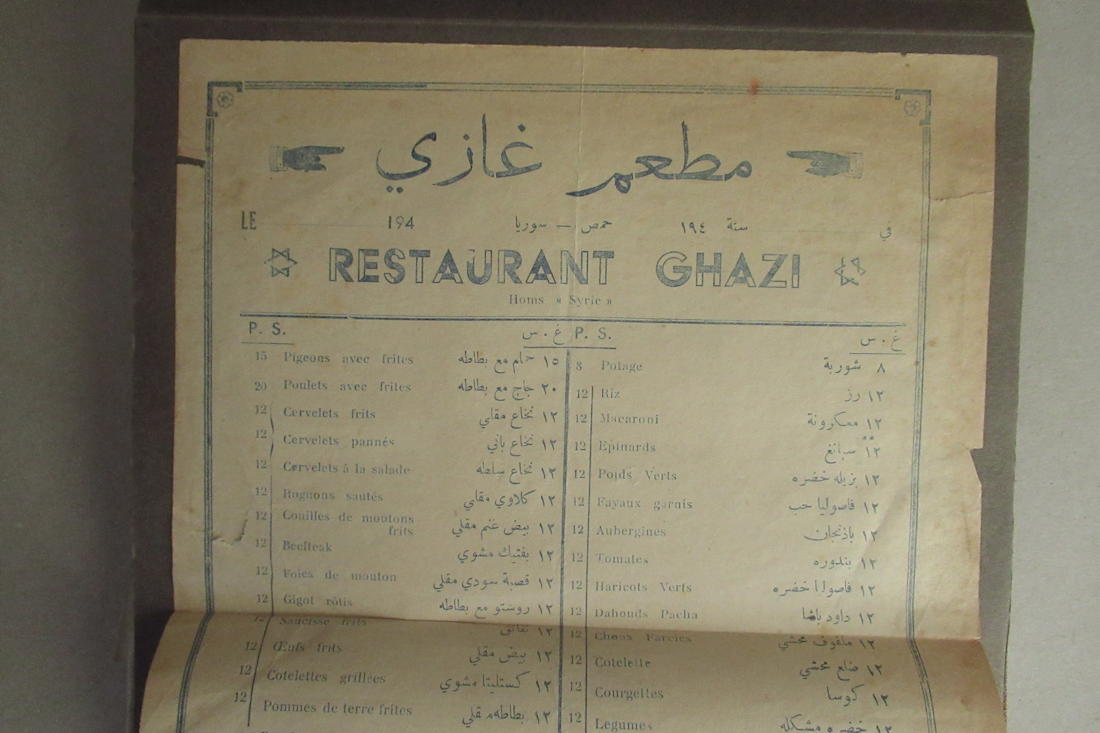 مطعم غازي
LE 194 حمص — سوريا سنة ١٩٤ في
RESTAURANT GHAZI
Homs « Syrie »
P. S. غ . س
15 Pigeons avec frites حمام مع بطاطه ١٥
20 Poulets avec frites جاج مع بطاطه ٢٠
12 Cervelets frits نخاع مقلي ١٢
12 Cervelets pannés نخاع باني ١٢
12 Cervelets à la salade نخاع سلطه ١٢
12 Rognons sautés كلاوي مقلي ١٢
12 Couilles de moutons frits بيض غنم مقلي ١٢
12 Beefteak بفتيك مشوي ١٢
12 Foies de mouton قصبة سودي مقلي ١٢
12 Gigot rôtis روستو مع بطاطه ١٢
12 Saucisse frits نقانق ١٢
12 Œufs frits بيض مقلي ١٢
12 Cotelettes grillées كستليتا مشوي ١٢
12 Pommes de terre frites بطاطه مقلي ١٢
P. S. غ . س
8 Potage شوربة ٨
12 Riz رز ١٢
12 Macaroni معكرونة ١٢
12 Epinards سبانغ ١٢
12 Poids Verts بزيله خضره ١٢
12 Fayaux garnis فاصوليا حب ١٢
12 Aubergines باذنجان ١٢
12 Tomates بندوره ١٢
12 Haricots Verts فاصوليا خضره ١٢
12 Dahouds Pacha داود باشا ١٢
12 Choux Farcies ملفوف محشي ١٢
12 Cotelette ضلع محشي ١٢
12 Courgettes كوسا ١٢
12 Legumes خضره مشكله ١٢